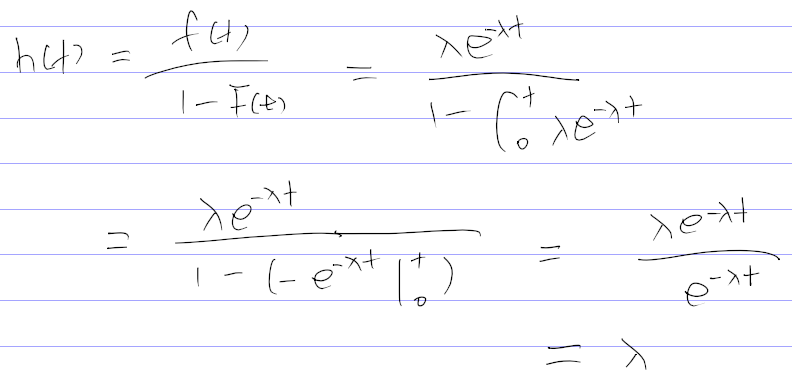 h(t) = f(t) / (1 - F(t)) = λe^{-λt} / (1 - ∫_0^t λe^{-λt})
= λe^{-λt} / (1 - (-e^{-λt} |_0^t)) = λe^{-λt} / e^{-λt}
= λ